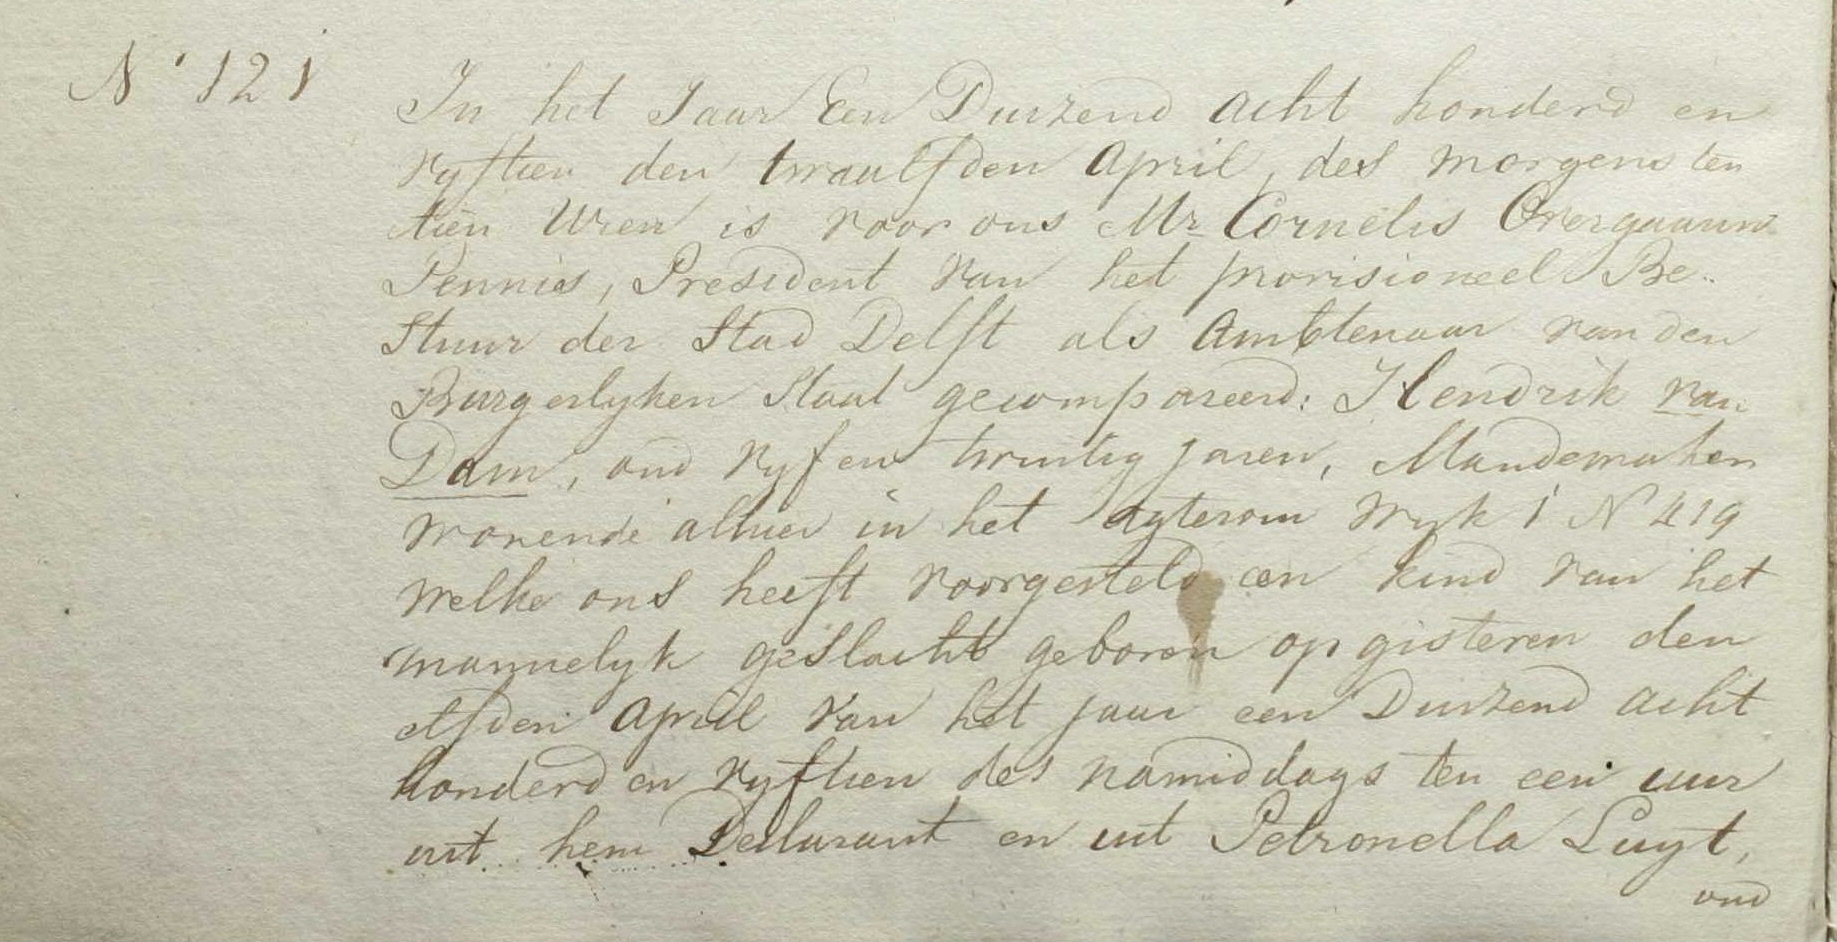 N° 121
In het Jaar Een Duizend acht honderd en
vyftien den twaalfden April, des morgens ten
tien Uren is voor ons Mr Cornelis Overgaauw
Pennis, President van het provisioneel Be-
stuur der Stad Delft als Ambtenaar van den
Burgerlyken Staat gecompareerd: Hendrik van
Dam, oud vyf en twintig jaren, Mandemaker
wonende alhier in het Agterom Wyk 1 N 419
welke ons heeft voorgesteld een kind van het
mannelyk geslacht geboren op gisteren den
elfden April van het jaar een Duizend acht
honderd en vyftien des namiddags ten een uur
uit hem Declarant en uit Petronella Luyt,
oud